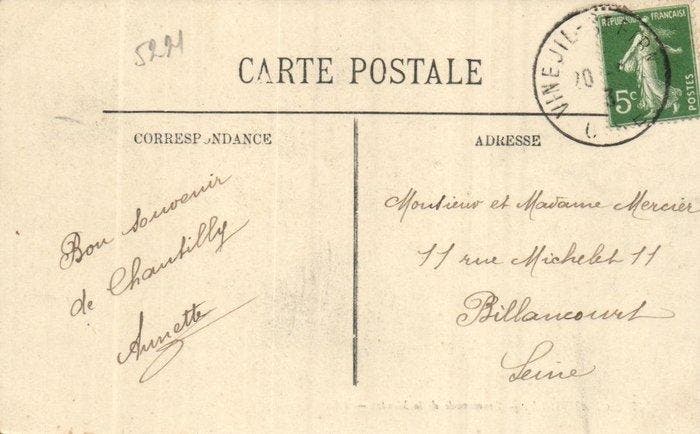 5221
CARTE POSTALE
REPUBLIQUE FRANÇAISE
5c
POSTES
CORRESPONDANCE
ADRESSE
Bon souvenir
de Chantilly
Annette
Monsieur et Madame Mercier
11 rue Michelet 11
Billancourt
Seine